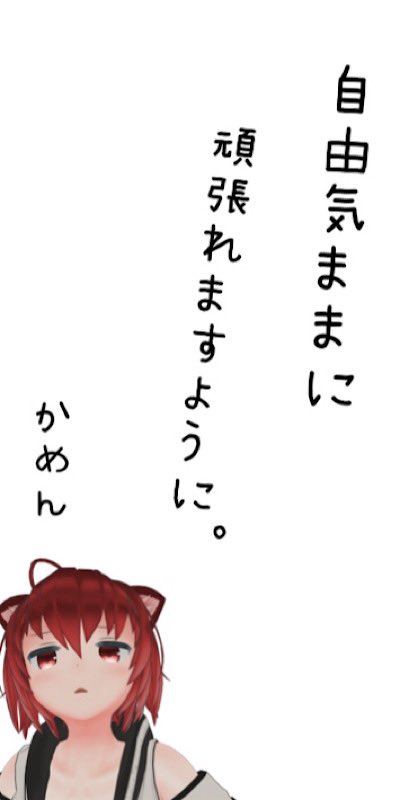 自由気ままに
頑張れますように。
かめん